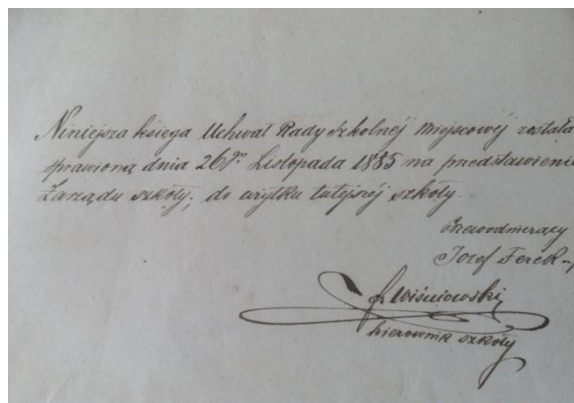 Niniejsza księga Uchwał Rady szkolnéj miejscowéj została
sprawioną dnia 26go Listopada 1885 na przedstawienie
Zarządu szkoły, do użytku tutejszéj szkoły.
Przewodniczący
Józef Ferek
Wiśniowski
kierownik szkoły